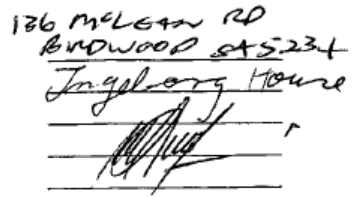 136 McLEAN RD
BIRDWOOD SA 5234
Ingeborg House